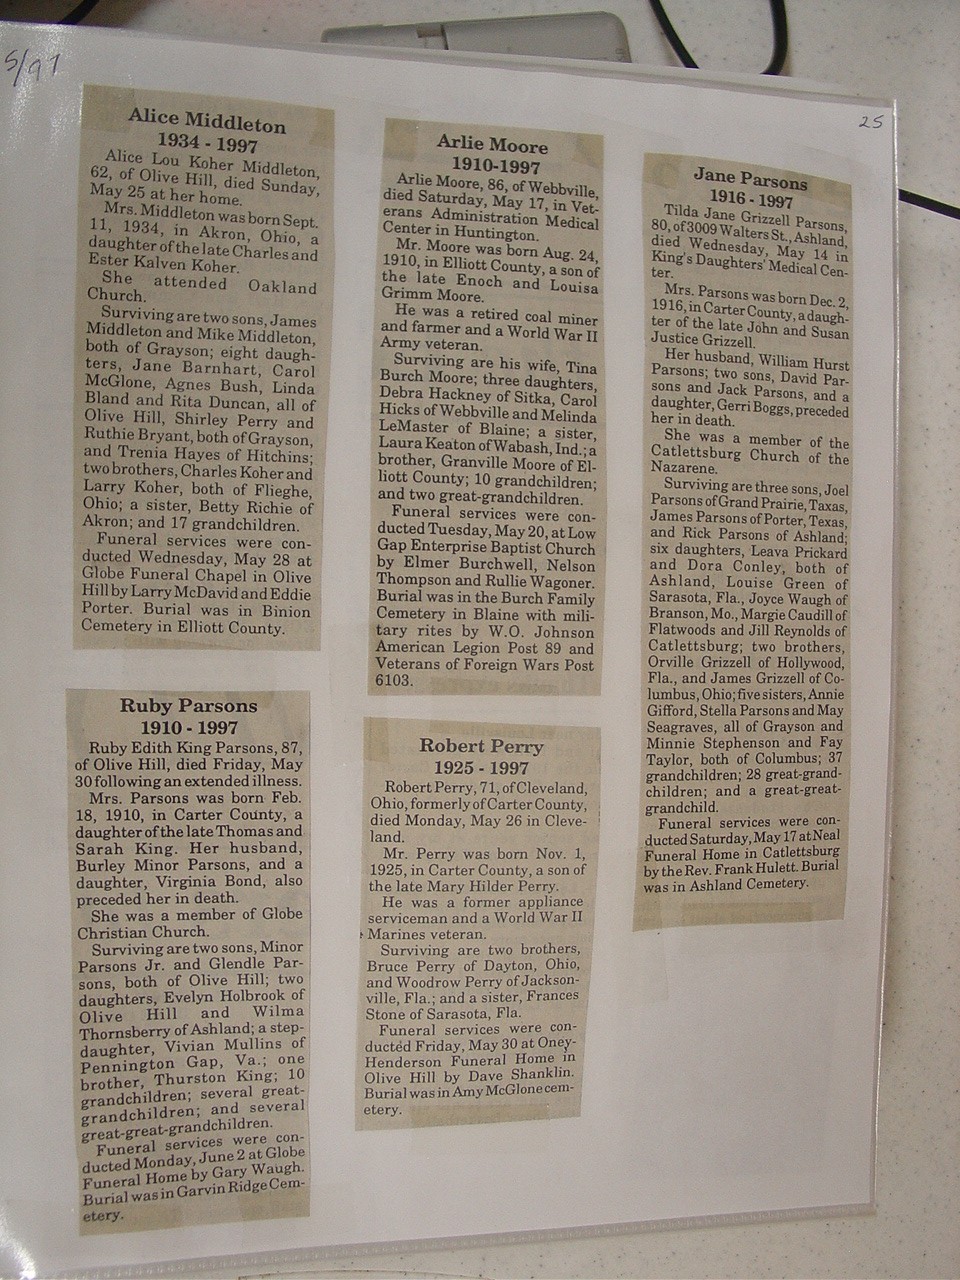 5/97
25
Alice Middleton
1934 - 1997
Alice Lou Koher Middleton,
62, of Olive Hill, died Sunday,
May 25 at her home.
Mrs. Middleton was born Sept.
11, 1934, in Akron, Ohio, a
daughter of the late Charles and
Ester Kalven Koher.
She attended Oakland
Church.
Surviving are two sons, James
Middleton and Mike Middleton,
both of Grayson; eight daugh-
ters, Jane Barnhart, Carol
McGlone, Agnes Bush, Linda
Bland and Rita Duncan, all of
Olive Hill, Shirley Perry and
Ruthie Bryant, both of Grayson,
and Trenia Hayes of Hitchins;
two brothers, Charles Koher and
Larry Koher, both of Flieghe,
Ohio; a sister, Betty Richie of
Akron; and 17 grandchildren.
Funeral services were con-
ducted Wednesday, May 28 at
Globe Funeral Chapel in Olive
Hill by Larry McDavid and Eddie
Porter. Burial was in Binion
Cemetery in Elliott County.
Ruby Parsons
1910 - 1997
Ruby Edith King Parsons, 87,
of Olive Hill, died Friday, May
30 following an extended illness.
Mrs. Parsons was born Feb.
18, 1910, in Carter County, a
daughter of the late Thomas and
Sarah King. Her husband,
Burley Minor Parsons, and a
daughter, Virginia Bond, also
preceded her in death.
She was a member of Globe
Christian Church.
Surviving are two sons, Minor
Parsons Jr. and Glendle Par-
sons, both of Olive Hill; two
daughters, Evelyn Holbrook of
Olive Hill and Wilma
Thornsberry of Ashland; a step-
daughter, Vivian Mullins of
Pennington Gap, Va.; one
brother, Thurston King; 10
grandchildren; several great-
grandchildren; and several
great-great-grandchildren.
Funeral services were con-
ducted Monday, June 2 at Globe
Funeral Home by Gary Waugh.
Burial was in Garvin Ridge Cem-
etery.
Arlie Moore
1910-1997
Arlie Moore, 86, of Webbville,
died Saturday, May 17, in Vet-
erans Administration Medical
Center in Huntington.
Mr. Moore was born Aug. 24,
1910, in Elliott County, a son of
the late Enoch and Louisa
Grimm Moore.
He was a retired coal miner
and farmer and a World War II
Army veteran.
Surviving are his wife, Tina
Burch Moore; three daughters,
Debra Hackney of Sitka, Carol
Hicks of Webbville and Melinda
LeMaster of Blaine; a sister,
Laura Keaton of Wabash, Ind.; a
brother, Granville Moore of El-
liott County; 10 grandchildren;
and two great-grandchildren.
Funeral services were con-
ducted Tuesday, May 20, at Low
Gap Enterprise Baptist Church
by Elmer Burchwell, Nelson
Thompson and Rullie Wagoner.
Burial was in the Burch Family
Cemetery in Blaine with mili-
tary rites by W.O. Johnson
American Legion Post 89 and
Veterans of Foreign Wars Post
6103.
Robert Perry
1925 - 1997
Robert Perry, 71, of Cleveland,
Ohio, formerly of Carter County,
died Monday, May 26 in Cleve-
land.
Mr. Perry was born Nov. 1,
1925, in Carter County, a son of
the late Mary Hilder Perry.
He was a former appliance
serviceman and a World War II
Marines veteran.
Surviving are two brothers,
Bruce Perry of Dayton, Ohio,
and Woodrow Perry of Jackson-
ville, Fla.; and a sister, Frances
Stone of Sarasota, Fla.
Funeral services were con-
ducted Friday, May 30 at Oney-
Henderson Funeral Home in
Olive Hill by Dave Shanklin.
Burial was in Amy McGlone cem-
etery.
Jane Parsons
1916 - 1997
Tilda Jane Grizzell Parsons,
80, of 3009 Walters St., Ashland,
died Wednesday, May 14 in
King's Daughters' Medical Cen-
ter.
Mrs. Parsons was born Dec. 2,
1916, in Carter County, a daugh-
ter of the late John and Susan
Justice Grizzell.
Her husband, William Hurst
Parsons; two sons, David Par-
sons and Jack Parsons, and a
daughter, Gerri Boggs, preceded
her in death.
She was a member of the
Catlettsburg Church of the
Nazarene.
Surviving are three sons, Joel
Parsons of Grand Prairie, Taxas,
James Parsons of Porter, Texas,
and Rick Parsons of Ashland;
six daughters, Leava Prickard
and Dora Conley, both of
Ashland, Louise Green of
Sarasota, Fla., Joyce Waugh of
Branson, Mo., Margie Caudill of
Flatwoods and Jill Reynolds of
Catlettsburg; two brothers,
Orville Grizzell of Hollywood,
Fla., and James Grizzell of Co-
lumbus, Ohio; five sisters, Annie
Gifford, Stella Parsons and May
Seagraves, all of Grayson and
Minnie Stephenson and Fay
Taylor, both of Columbus; 37
grandchildren; 28 great-grand-
children; and a great-great-
grandchild.
Funeral services were con-
ducted Saturday, May 17 at Neal
Funeral Home in Catlettsburg
by the Rev. Frank Hulett. Burial
was in Ashland Cemetery.